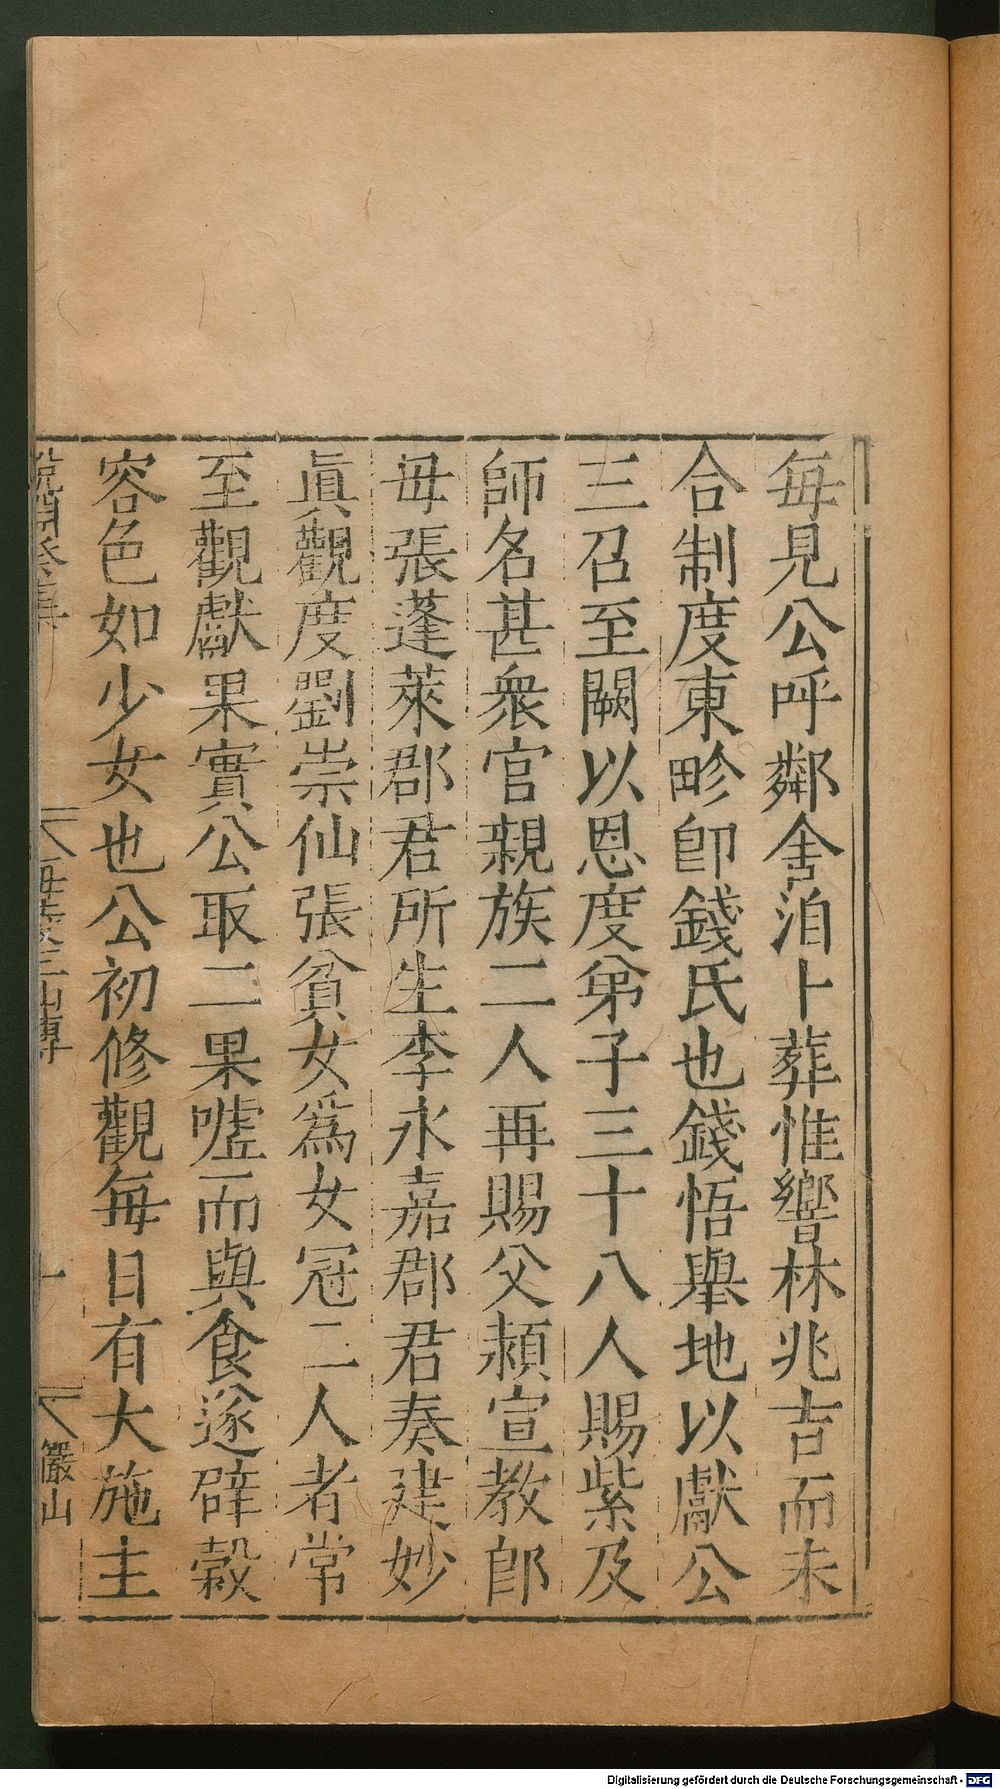 每見公呼鄰舍洎卜葬惟響林兆吉而未
合制度東畛卽錢氏也錢悟舉地以獻公
三召至闕以恩度弟子三十八人賜紫及
師名甚衆官親族二人再賜父頛宣教郎
毋張蓬萊郡君所生李永嘉郡君奏建妙
眞觀度劉崇仙張貧女爲女冠二人者常
至觀獻果實公取二果噓而與食遂辟穀
容色如少女也公初修觀每日有大施主
海陵三仙傳
十
儼山
Digitalisierung gefördert durch die Deutsche Forschungsgemeinschaft - DFG